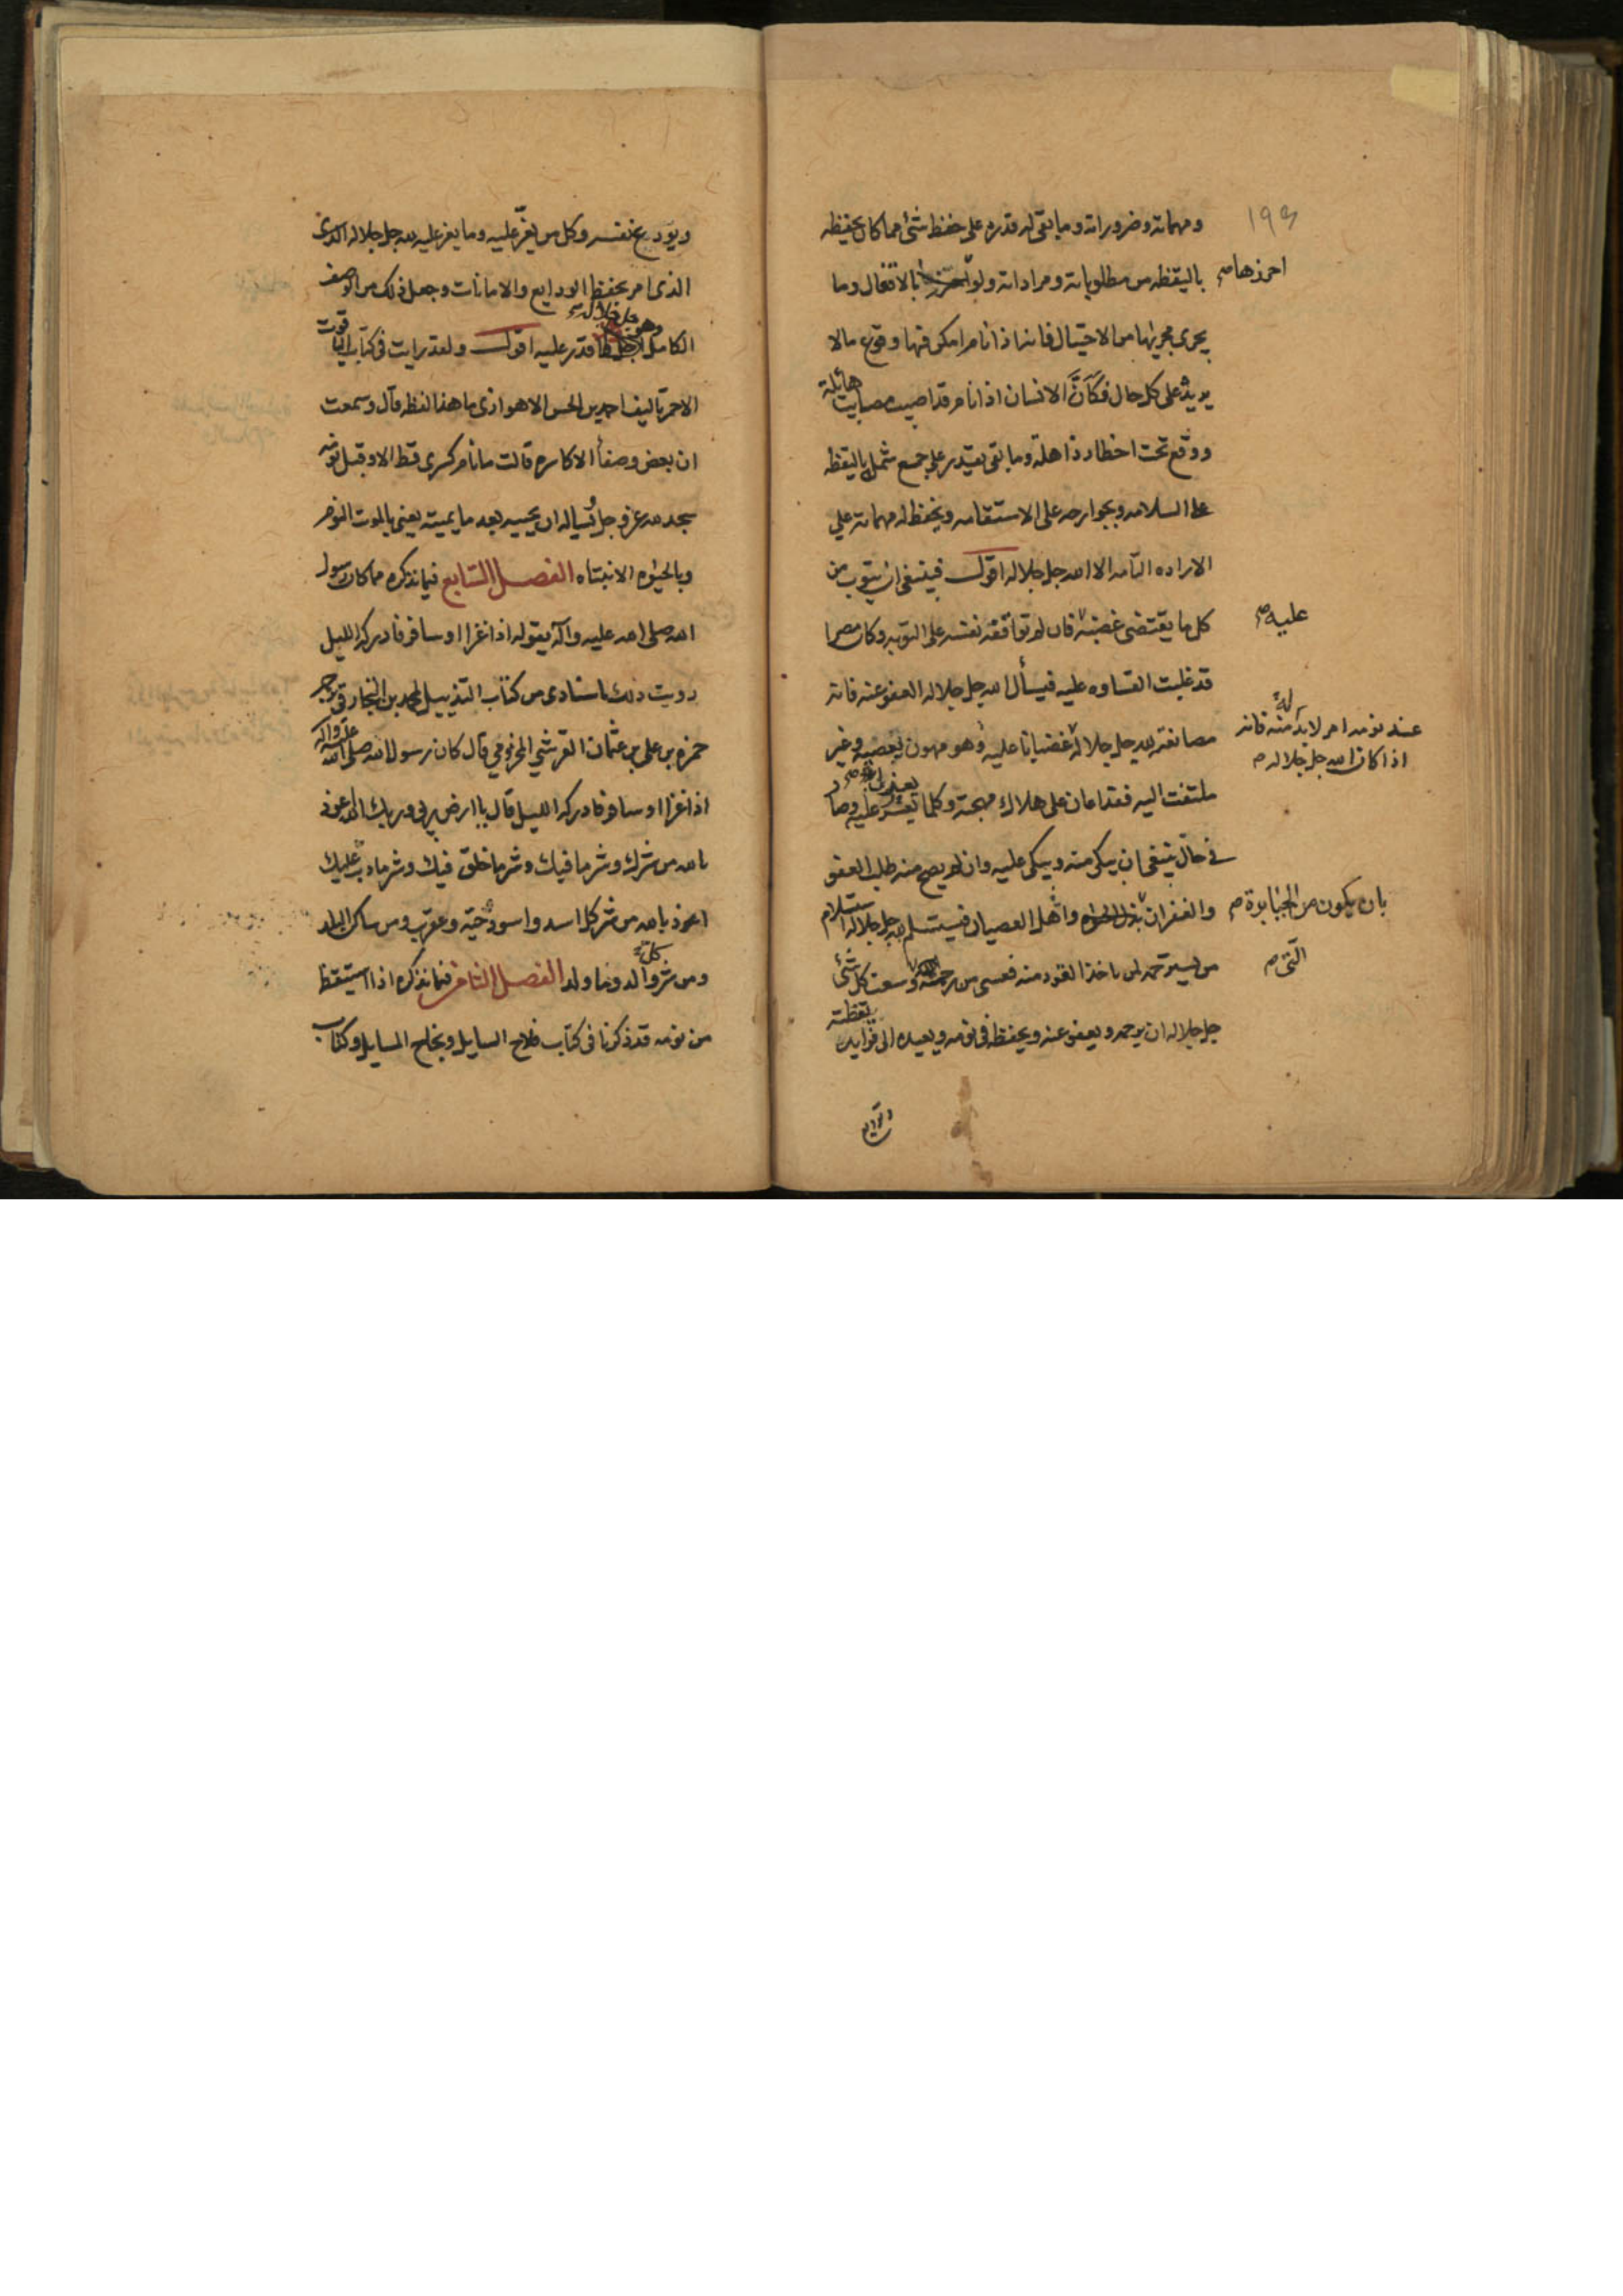 ١٩٤
ومهماته وضروراته وما بقى له قدره على حفظ شئ مما كان يحفظه
باليقظه من مطلوباته ومراداته ولو احرزها بالاقفال وما
احرزها صح
يجرى مجريها من الاحتيال فانه اذا نام امكن فيها وقوع مالا
يريد على كل حال فكانَّ الانسان اذا نام قد اصيب بمصايب هائلة
ووقع تحت اخطار ذاهلة وما بقى يقتدر على جمع شمله باليقظه
على السلامه وبجوارحه على الاستقامه ويحفظ له مهماته على
الاراده التامه الا الله جل جلاله اقول فينبغى ان يتوب من
كل ما يقتضى غضبه فان لم توافقه نفسه على التوبه وكان مصرا
عليه صح
قد غلبت القساوه عليه فيسأل الله جل جلاله العفو عنه فانه
عند نومه امر لابد له منه فانه
اذا كان الله جل جلاله صح
مصانعته لله جل جلاله غضبانا عليه وهو مهون بغضبه وغير
ملتفت اليه فقد اعان على هلاك مهجته وكلما يتعذر عليه وصار
فى حال ينبغى ان يبكى منه ويبكى عليه وان لم يصح منه طلب العفو
والغفران بذل الحياه واهل العصيان فيستسلم لله جل جلاله استسلام
بان يكون من الجبابرة صح
من يسترحم لمن ياخذ القود منه فعسى من رحمته وسعت كل شئ
التى صح
جل جلاله ان يرحمه ويعفو عنه ويحفظه فى نومه ويعيده الى فوايد يقظته
ويودع نفسه وكل من يعزّ عليه وما يعز عليه لله جل جلاله الذى
الذى امر بحفظ الودايع والامانات وجعل ذلك من الوصف
الكامل وهو جل جلاله قدر عليه اقول ولقد رايت فى كتاب اليواقيت
الاحمر تاليف احمد بن الحسن الاهوازى ما هذا لفظه قال وسمعت
ان بعض وصفاء الاكاسره قالت ما نام كسرى قط الا وقبل نومه
سجد لله عز وجل يساله ان يحييه بعد ما يميته يعنى بالموت النوم
وبالحيوه الانتباه الفصل السابع فيما نذكره مما كان رسول
الله صلى الله عليه وآله يقوله اذا غزا او سافر فادركه الليل
رويت ذلك باسنادى من كتاب التذييل لمحمد بن النجار فى ترجمه
حمزه بن على بن عثمان القرشي المخزومي قال كان رسول الله صلى الله عليه واله
اذا غزا او سافر فادركه الليل قال يا ارض ربى وربك الله اعوذ
بالله من شرك وشر ما فيك وشر ما خلق فيك وشر ما دب عليك
اعوذ بالله من شر كل اسد واسود وحيّه وعقرب ومن ساكن البلد
ومن شر كل والد وما ولد الفصل الثامن فيما نذكره اذا استيقظ
من نومه قد ذكرنا فى كتاب فلاح السايل ونجاح المسايل وكتاب